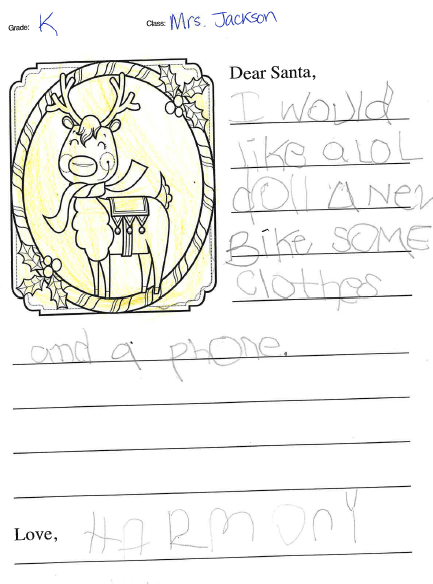 Grade: K Class: Mrs. Jackson
Dear Santa,
I would
like a lol
doll A New
Bike SOME
Clothes
and a phone.
Love, HARMONY